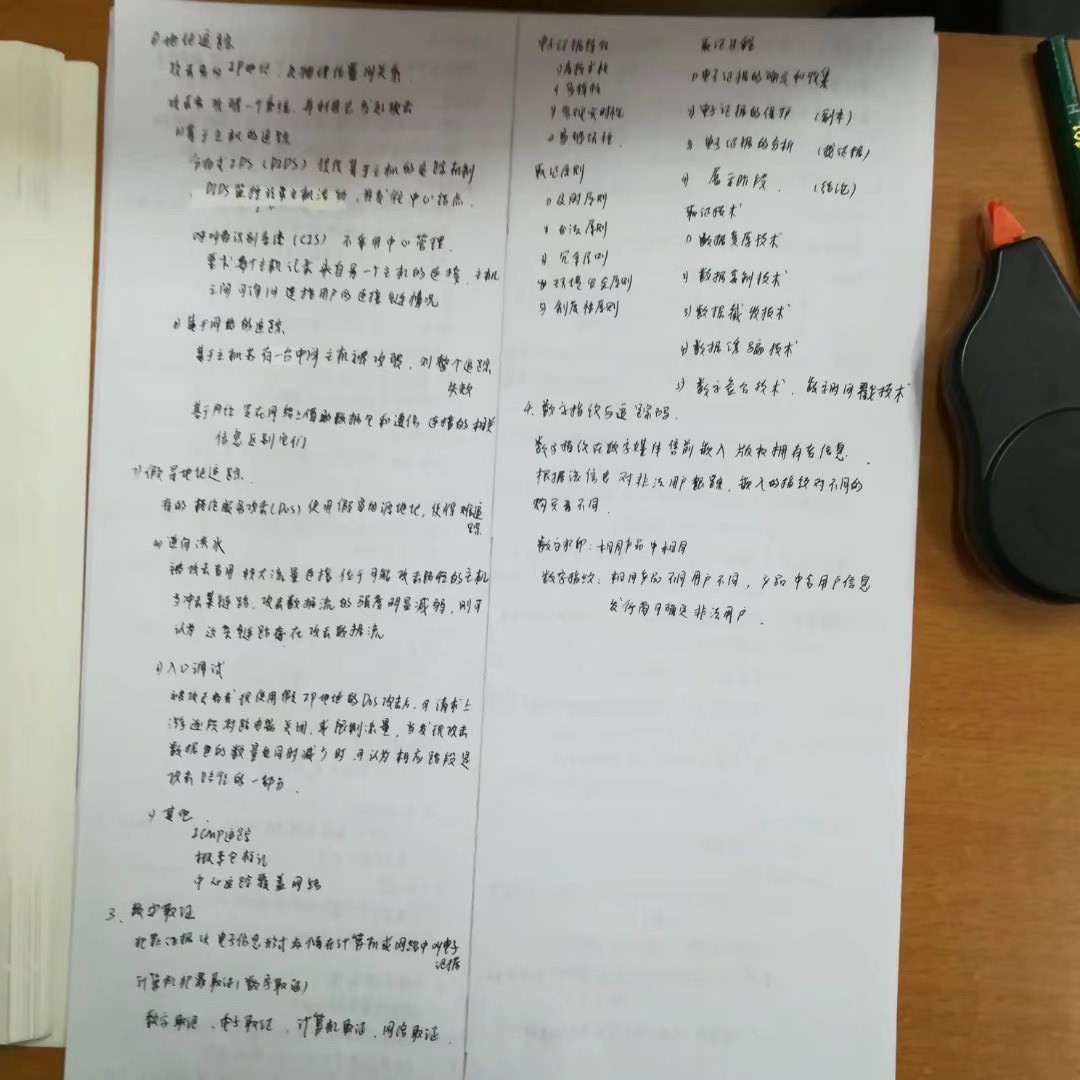 地址追踪
攻击者的IP地址,与物理位置间关系.
攻击者攻破一个系统,再利用它发起攻击
基于主机的追踪
分布式IDS(DIDS)提供基于主机的追踪机制
DIDS监控记录主机活动,并发往中心结点.
呼叫者识别系统(CIS)不采用中心管理.
要求每个主机记录来自另一个主机的连接,主机
之间可询问连接用户的连接情况
基于网络的追踪
基于主机若有一台中间主机被攻破,则整个追踪
失效
基于网络是在网络上借助数据包和通信连接的相关
信息区别它们
假冒地址追踪.
有的拒绝服务攻击(DoS)使用假冒的源地址,使得难追
踪.
逆向洪水
被攻击者用较大流量连接位于可能攻击路径的主机
当冲击某链路,攻击数据流的强度明显减弱,则可
认为这类链路存在攻击数据流
入口调试
被攻击者发现使用假IP地址的DoS攻击后,可请求上
游逐段对路由器关闭,或限制流量,当发现攻击
数据包的数量也同时减少时,可认为相应路段是
攻击路径的一部分.
其他.
ICMP追踪
概率包标记
中心追踪覆盖网络
3、数字取证
犯罪证据以电子信息形式存储在计算机或网络中叫电子
证据
计算机犯罪取证(数字取证)
数字取证、电子取证、计算机取证、网络取证.
电子证据特点
高技术性
易损性
取证原则
及时原则
合法原则
完全原则
环境安全原则
制度性原则
取证过程
1)电子证据的确定和收集
2)电子证据的保护 (副本)
3)电子证据的分析 (据证据)
4)展示阶段. (结论)
取证技术
1)数据复原技术
2)数据复制技术
3)数据截收技术
4)数据诱骗技术
5)数字签名技术、数字时间戳技术
4.数字指纹与追踪码.
数字指纹在数字媒体售前嵌入版权拥有者信息.
根据该信息对非法用户跟踪,嵌入的指纹对不同的
购买者不同.
数字水印:相同产品中相同
数字指纹:相同产品不同用户不同,产品中含用户信息
发行商可确定非法用户.